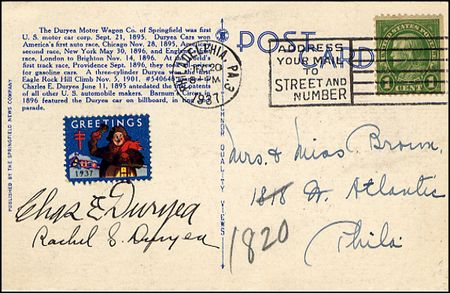 The Duryea Motor Wagon Co. of Springfield was first
U. S. motor car corp. Sept. 21, 1895. Duryea Cars won
America's first auto race, Chicago Nov. 28, 1895, American
review race, New York May 30, 1896, and English
race, London to Brighton Nov. 14, 1896. At world's
first track race, Providence Sept. 1896, they took
for gasoline cars. A three-cylinder Duryea was the first
Eagle Rock Hill Climb Nov. 5, 1901.
Charles E. Duryea June 11, 1895 antedated the patents
of all other U. S. automobile makers. Barnum's Circus
1896 featured the Duryea car on billboard, in
parade.
POST CARD
PHILADELPHIA PA. 3
20
8 PM
1937
ADDRESS
YOUR MAIL
TO
STREET AND
NUMBER
UNITED STATES
1 CENT 1
GREETINGS
1937
PUBLISHED BY THE SPRINGFIELD NEWS COMPANY
QUALITY VIEWS
Chas E. Duryea
Rachel S. Duryea
Mrs. & Miss Brown,
1818 W. Atlantic
1820
Phila